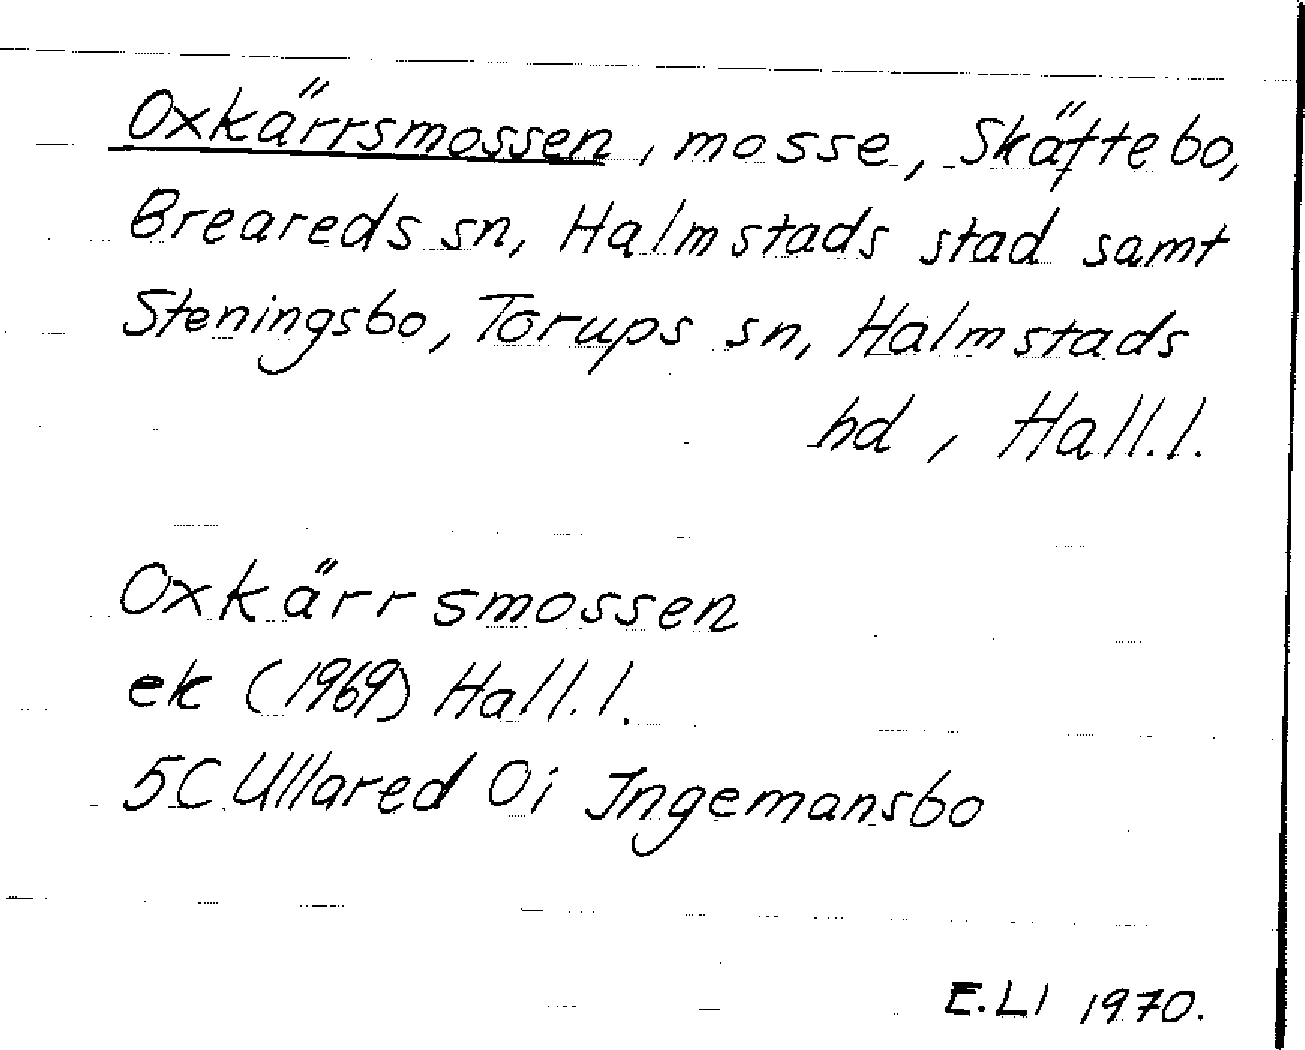 Oxkärrsmossen, mosse, Skäftebo,
Breareds sn, Halmstads stad samt
Steningsbo, Torups sn, Halmstads
hd, Hall.l.
Oxkärrsmossen
ek (1969) Hall.l.
5C Ullared 0i Ingemansbo
E.LI 1970.